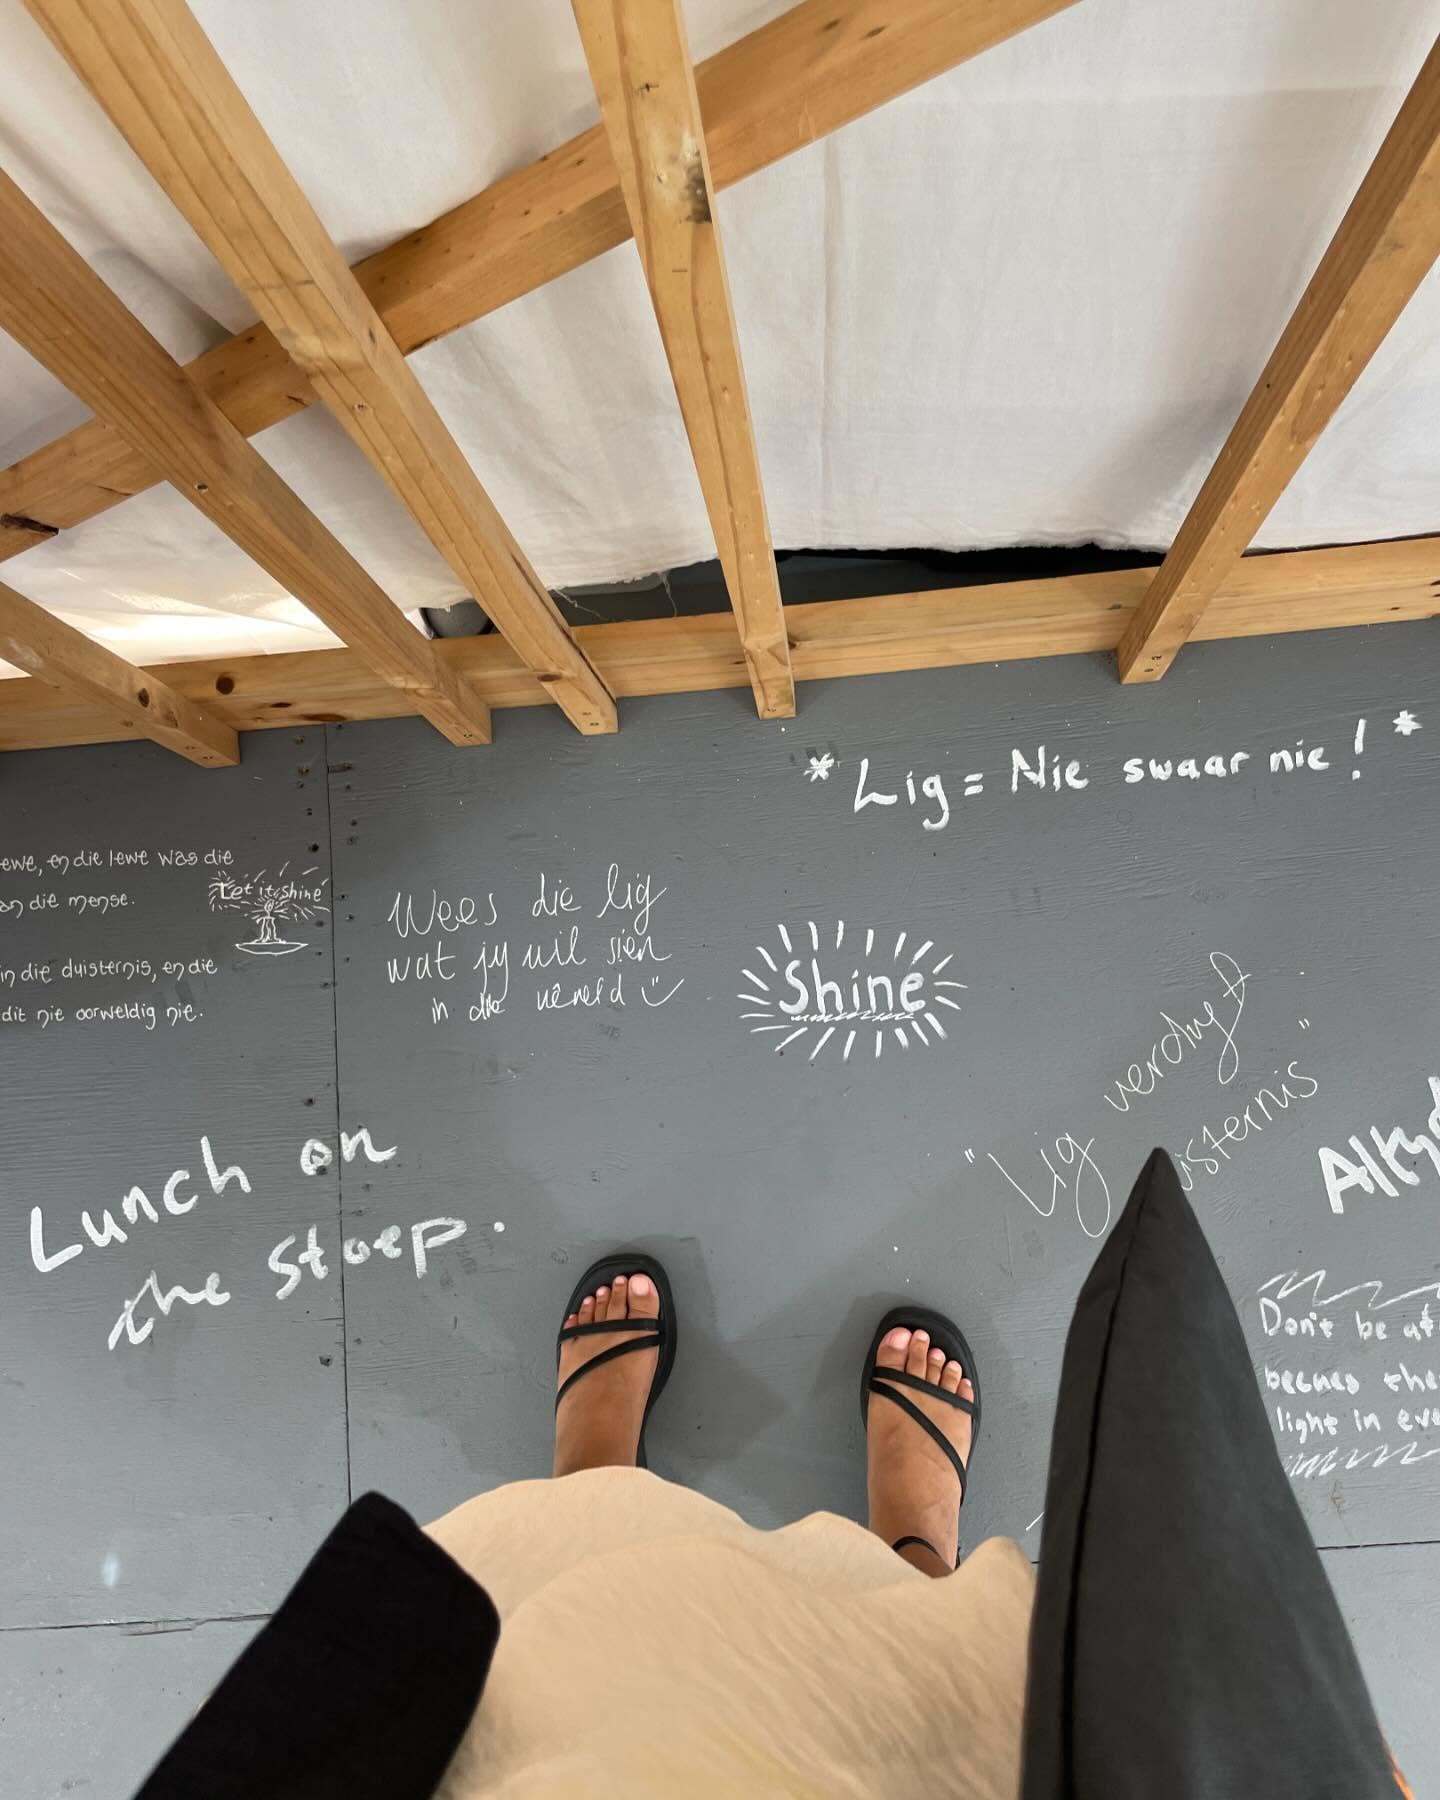 * Lig = Nie swaar nie! *
ewe, en die lewe was die
an die mense.
in die duisternis, en die
dit nie oorweldig nie.
Let it shine
Wees die lig
wat jy wil sien
in die wêreld
Shine
"Lig verdryf
uisternis"
Lunch on
the stoep.
Alkyd
Don't be af
because the
light in eve